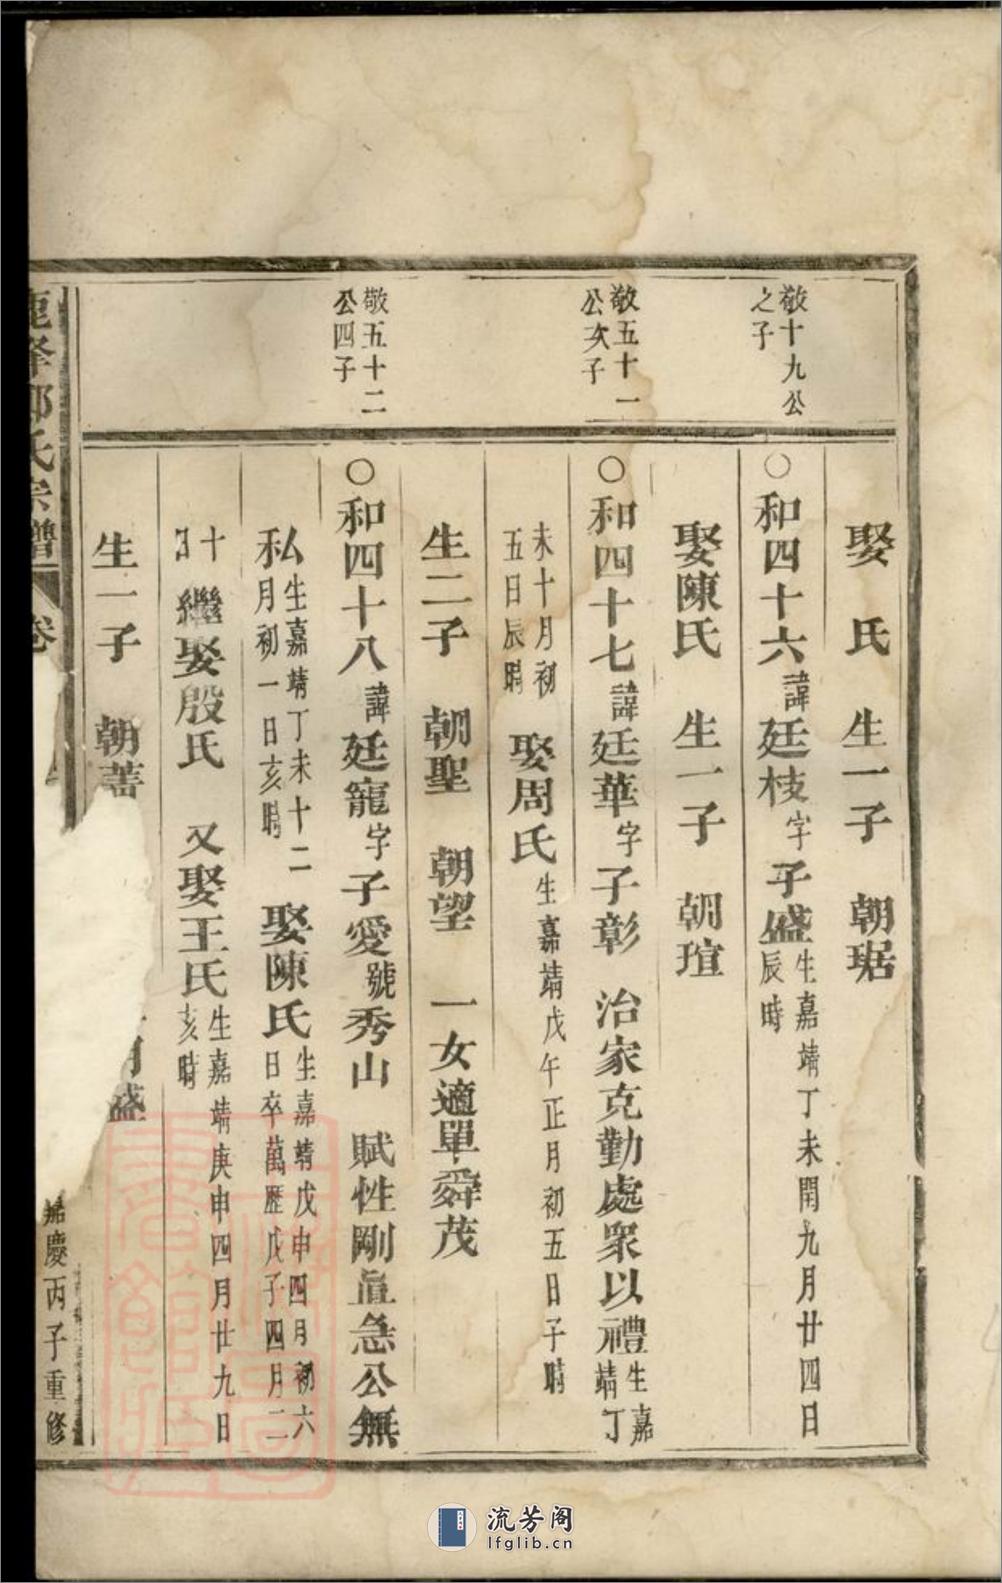 敬十九公
之子
敬五十一
公次子
敬五十二
公四子
娶　氏　生一子　朝琚
○和四十六諱廷枝字子盛生嘉靖丁未閏九月廿四日辰時
娶陳氏　生一子　朝瑄
○和四十七諱廷華字子彰　治家克勤處衆以禮生嘉靖丁
未十月初五日辰時　娶周氏生嘉靖戊午正月初五日子時
生二子　朝聖　朝望　一女適單舜茂
○和四十八諱廷寵字子愛號秀山　賦性剛直急公無
私生嘉靖丁未十二月初一日亥時　娶陳氏生嘉靖戊申四月初六日卒萬歷戊子四月二
十日　繼娶殷氏　又娶王氏生嘉靖庚申四月廿九日亥時
生一子　朝
盛
氏宗譜　卷
嘉慶丙子重修
流芳阁
lfglib.cn